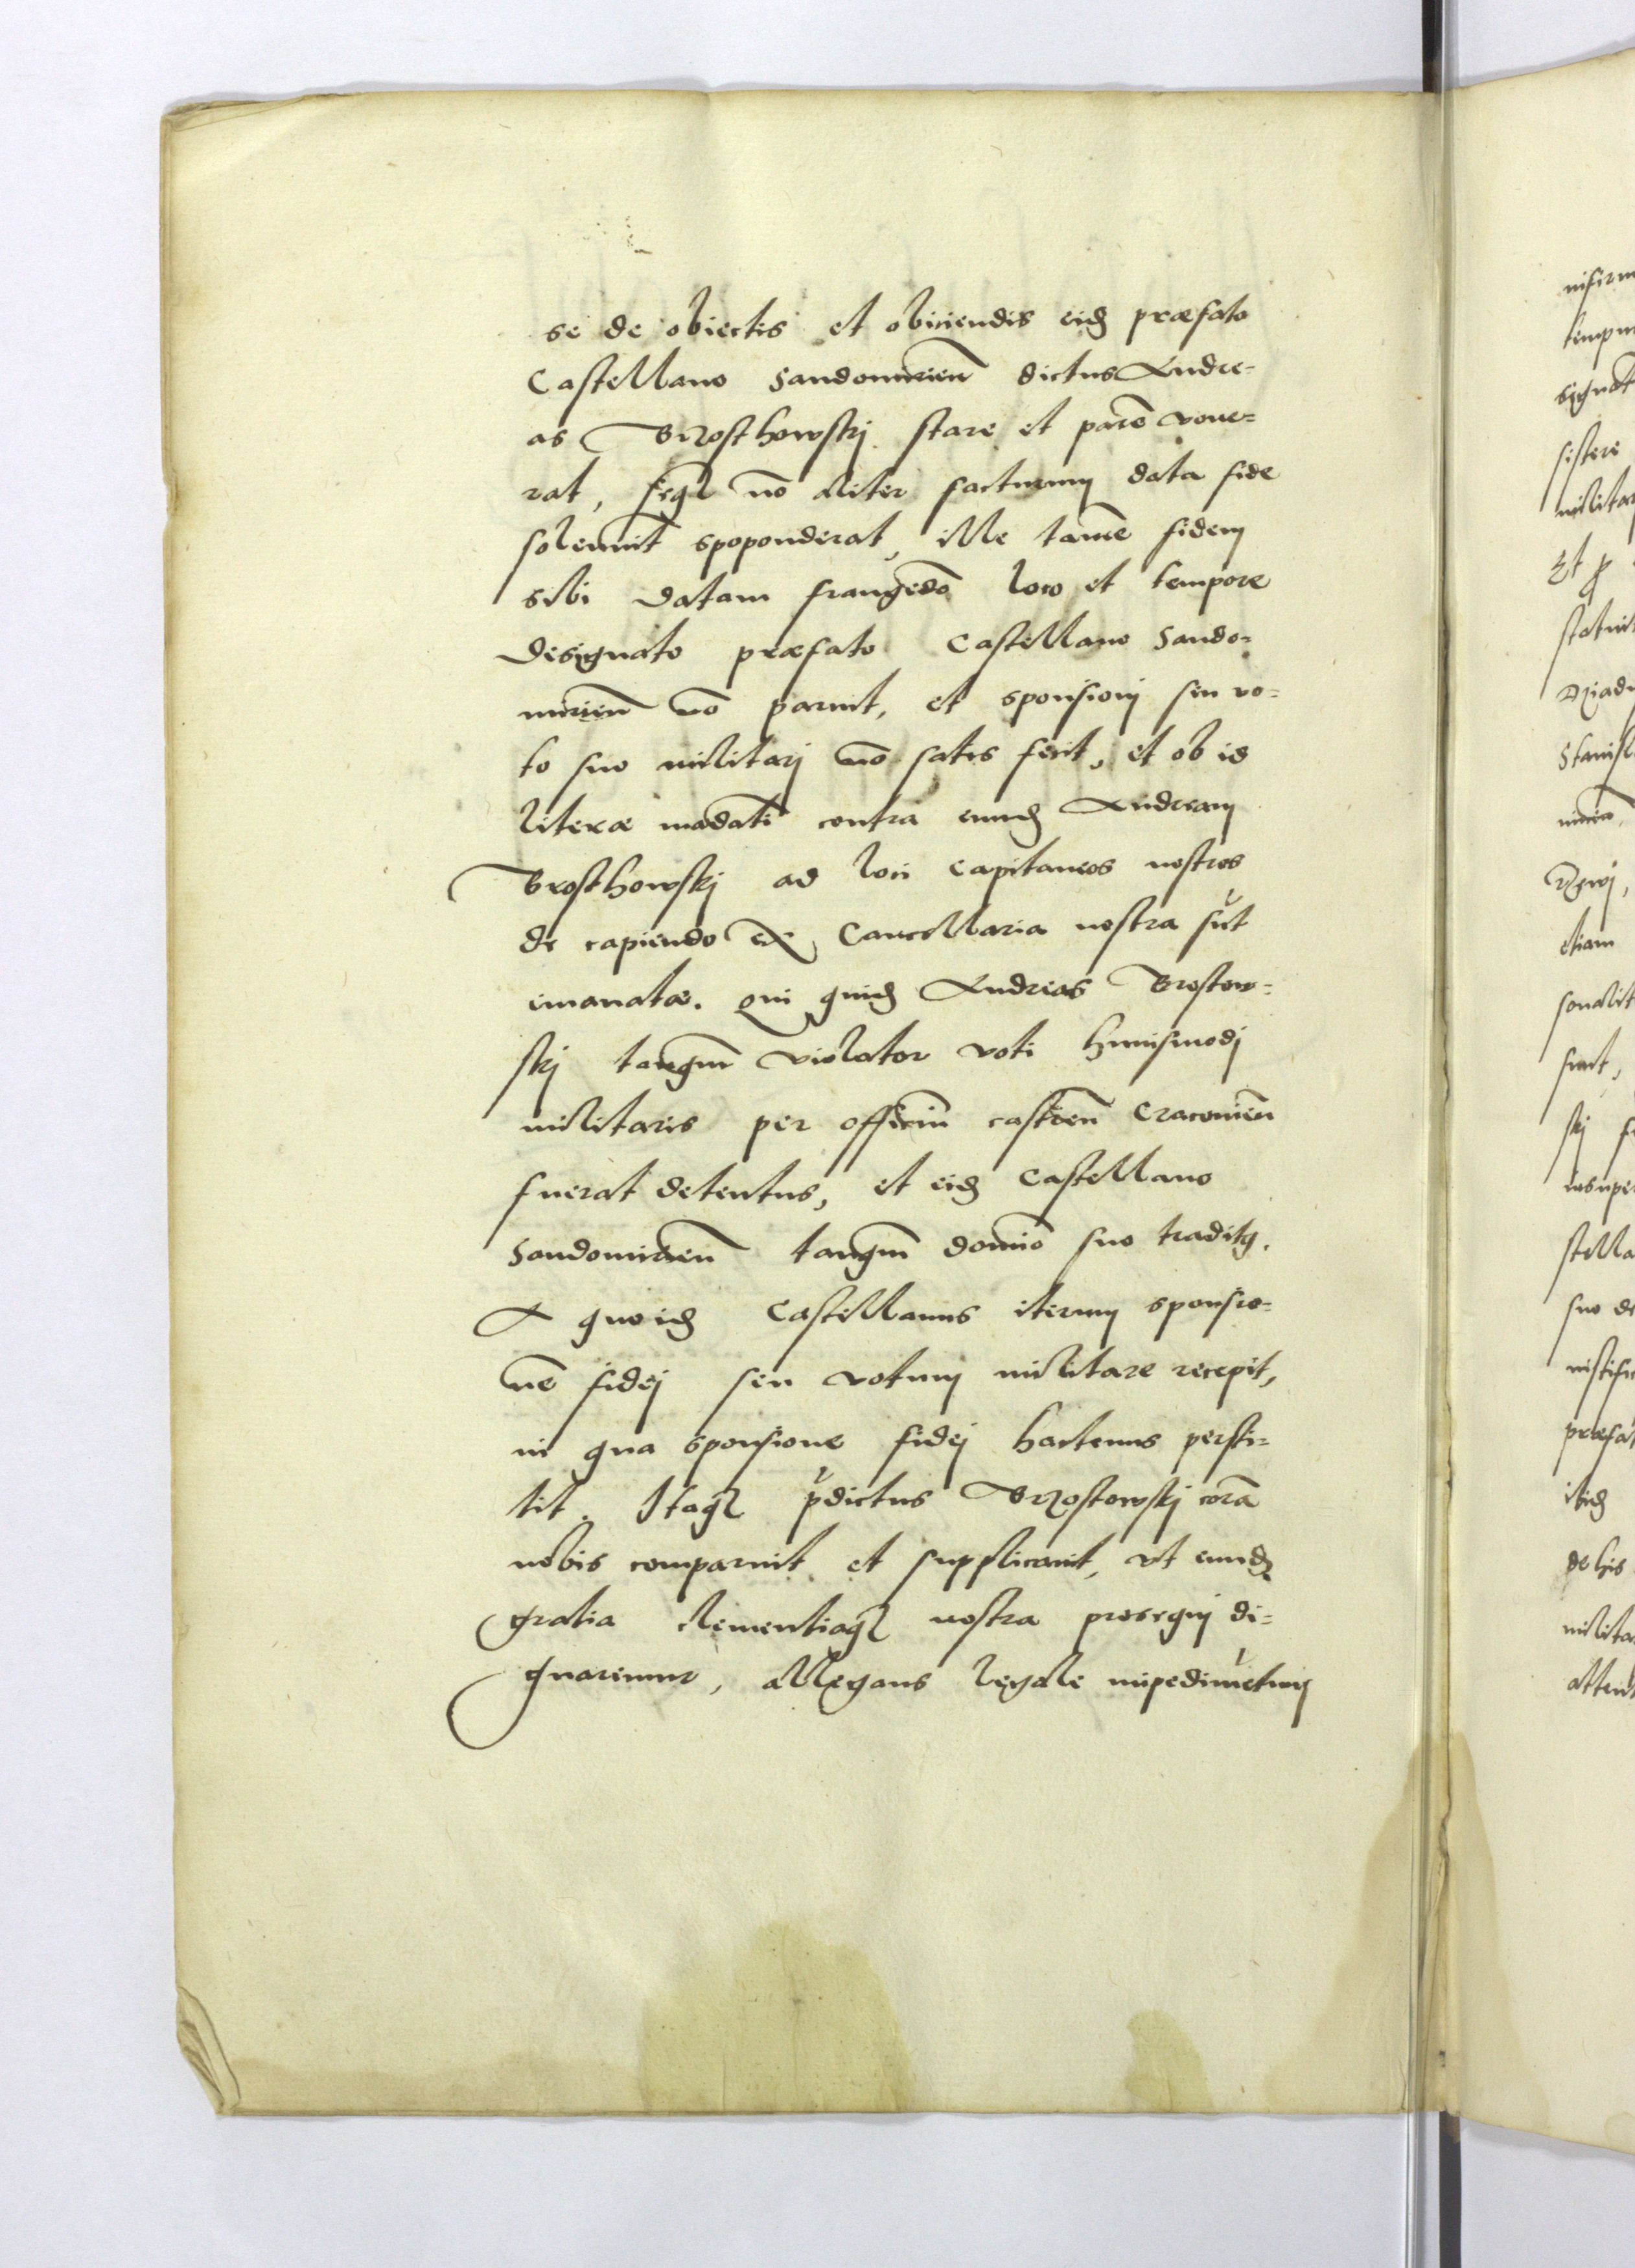 se de obiectis et obiiciendis eid₃ præfato
Castellano Sandomirien̄ dictus Andre=
as Brzosthowskj stare et parēe voue=
rat, seq₃ nō aliter facturum data fide
solemnit̄ spoponderat, ille tamē fidem
sibi datam frangēdo loco et tempore
designato præfato Castellano Sando=
mirien̄ nō paruit, et sponsionj seu vo=
to suo militarj nō satis fecit, et ob id
literæ mādati contra eund₃ Andream
Brosthowskj ad loci Capitaneos nostros
de capiendo ex Cancellaria nostra sūt
emanatæ. Qui quid₃ Andreas Brostow=
skj tanqm̄ violator voti huiusmodj
militaris per officiū castren̄ Cracouien̄
fuerat detentus, et eid₃ Castellano
Sandomirien̄ tanqm̄ domīo suo traditꝰ.
A quo id₃ Castellanus iterum sponsio=
nē fidej seu votum militare recepit,
in qua sponsione fidej hactenus persti=
tit. Itaq₃ p̄dictus Brzostowskj corā
nobis comparuit et supplicauit, vt eund₃
gratia clementiaq₃ nostra prosequj di=
gnaremur, allegans legale impedimētum
nisi
tempu
signat
sistere
militar
Et ꝓ
statuit
Dziadu
Stanisl
etiam
sonalit
sunt,
skj f
insuper
stella
suo de
iustifi
præfat
ibid₃
de his
milita
attent